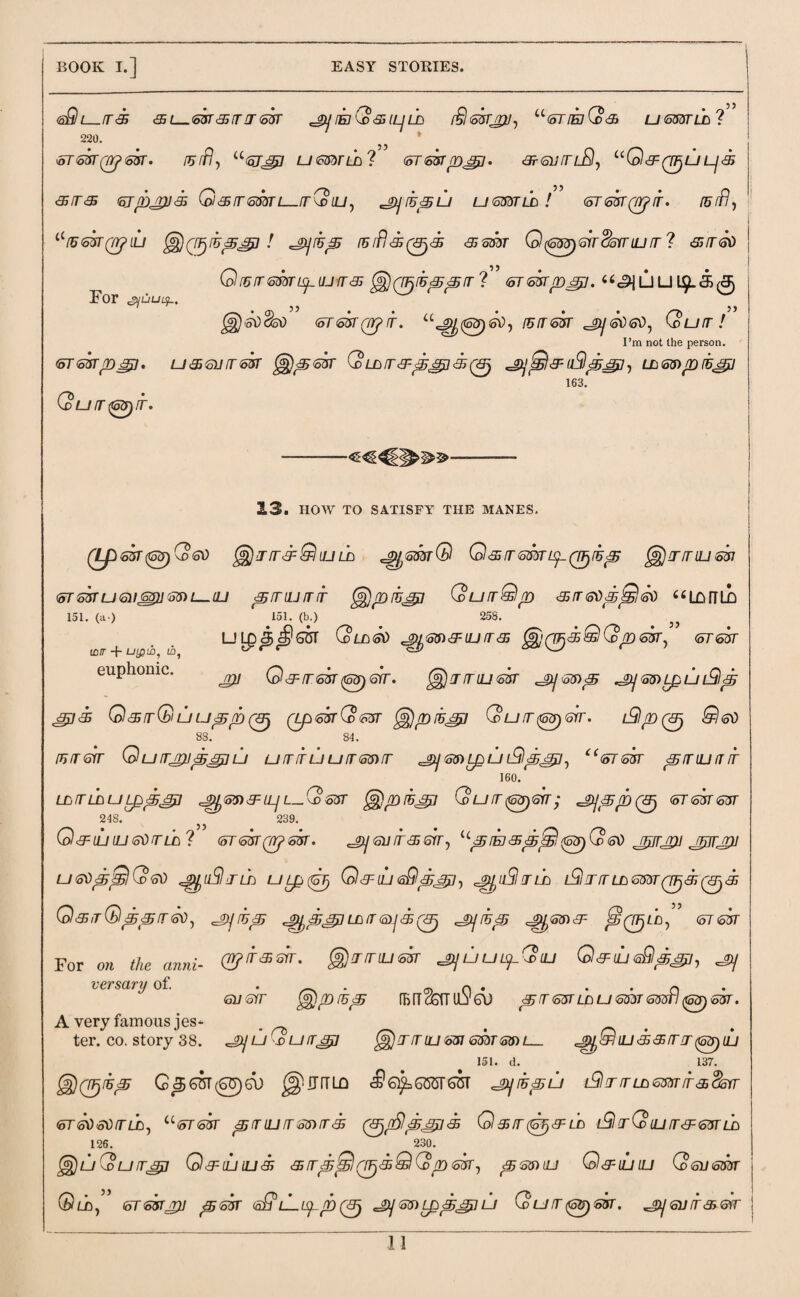 BOOK I.] EASY STORIES.
விடாக கடன்காரன் அங்கேயும் நின்று, “எங்கே பணம்?”
220.
என்றான். நரி, “ஏது பணம்?” என்றது. சவாமி, “செருப்புக்
காக ஏற்றுக் கொண்டாயே, அந்தப் பணம்!” என்றார். நரி,
“நன்றாய் இருந்தது! அந்த நரிக்குக் கண் தெரியுமா? கால்
நொண்டியாக இருந்ததா?” என்றது. “அப்படிக்கு
For அப்படி.
இல்லை” என்றார். “ஆனால், நான் அல்ல, போ!”
I’m not the person.
என்றது. பகவான் இதன் மோசத்துக்கு அதிசயித்து, மறைந்து
163.
போனார்.
13. HOW TO SATISFY THE MANES.
முன்னாலே இராச்சியம் ஆண்டு கொண்டிருந்த இராயன்
என்பவனுடைய தாயார் இறந்து போகிற காலத்தில் “மாம்
151. (a.) 151. (b.) 258.
பழத்தின் மேல் ஆசையாக இருக்கிறேன்,” என்
மா + பழம், ம், euphonic.
று சொன்னாள். இராயன் அதை அழைப்பித்
துக் கொடுப்பதற்கு முன்னே இறந்து போனாள். பிறகு சில
88. 84.
நாள் பொறுத்துப் பார்ப்பாரை அழைப்பித்து, “என் தாயார்
160.
மாம்பழத்து ஆசையுடனே இறந்து போனாள்; அதற்கு என்ன
248. 239.
செய்யலாம்?” என்றான். அவர்கள், “தங்கத்தினாலே நூறு நூறு
பலத்திலே ஆயிரம் பழஞ் செய்வித்து, ஆயிரம் பிராமணருக்குக்
கொடுத்தால், அந்த ஆத்துமாவுக்கு அந்த ஆசை தீரும்,” என்
றார்கள். இராயன் அப்படியே செய்வித்து, அ
For on the anniversary of.
வள் இறந்த நாளையில் தானம் பண்ணினான்.
A very famous jester. co. story 38.
அப்போது இராயனண்டை ஆசியக்காரனாய்
151. d. 137.
இருந்த தென்னால் இராம கிஷ்ணன் அந்தப் பிராமணர்களை
எல்லாம், “என் தாயாரைக் குறித்துக் கொஞ்சம் பிரயோசனம்
126. 230.
இப்போது செய்யக் காத்திருக்கிறேன், தயை செய்ய வேண்
டும்,” என்று தன் வீட்டிற்கு அழைத்துப் போனான். அவர்கள்
11